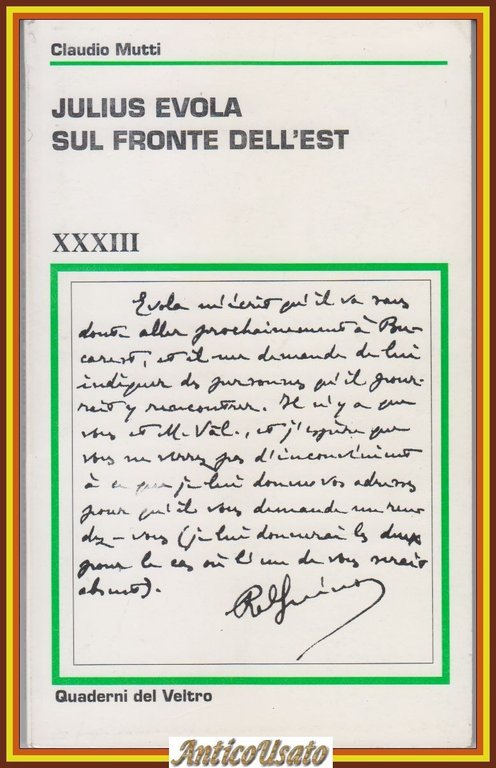 Claudio Mutti
JULIUS EVOLA
SUL FRONTE DELL'EST
XXXIII
Evola m'écrit qu'il va sans
doute aller prochainement à Bu-
carest, et il me demande de lui
indiquer des personnes qu'il pour-
rait y rencontrer. Il n'y a que
vous et M. Vâl., et j'espère que
vous ne verrez pas d'inconvénient
à ce que je lui donne vos adresses
pour qu'il vous demande un ren-
dez-vous (je lui donnerai les deux
pour le cas où l'un de vous serait
absent).
Quaderni del Veltro
AnticoUsato